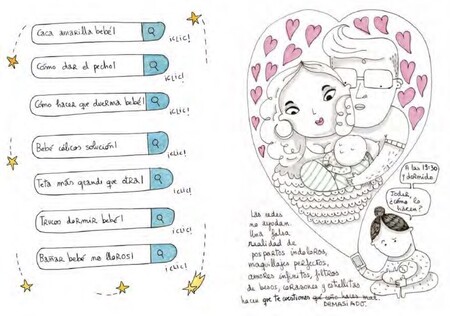 Caca amarilla bebé!
¡CLIC!
Cómo dar el pecho!
¡CLIC!
Cómo hacer que duerma bebé!
¡CLIC!
Bebé cólicos solución!
¡CLIC!
Teta más grande que otra!
¡CLIC!
Trucos dormir bebé!
¡CLIC!
Bañar bebé no lloros!
¡CLIC!
A las 19:30
y dormido
Joder
¿cómo lo
hacen?
Las redes
no ayudan.
Una falsa
realidad de
pospartos indoloros,
maquillajes perfectos,
amores infinitos, filtros
de besos, corazones y estrellitas
hacen que te cuestiones qué coño haces mal.
DEMASIADO.